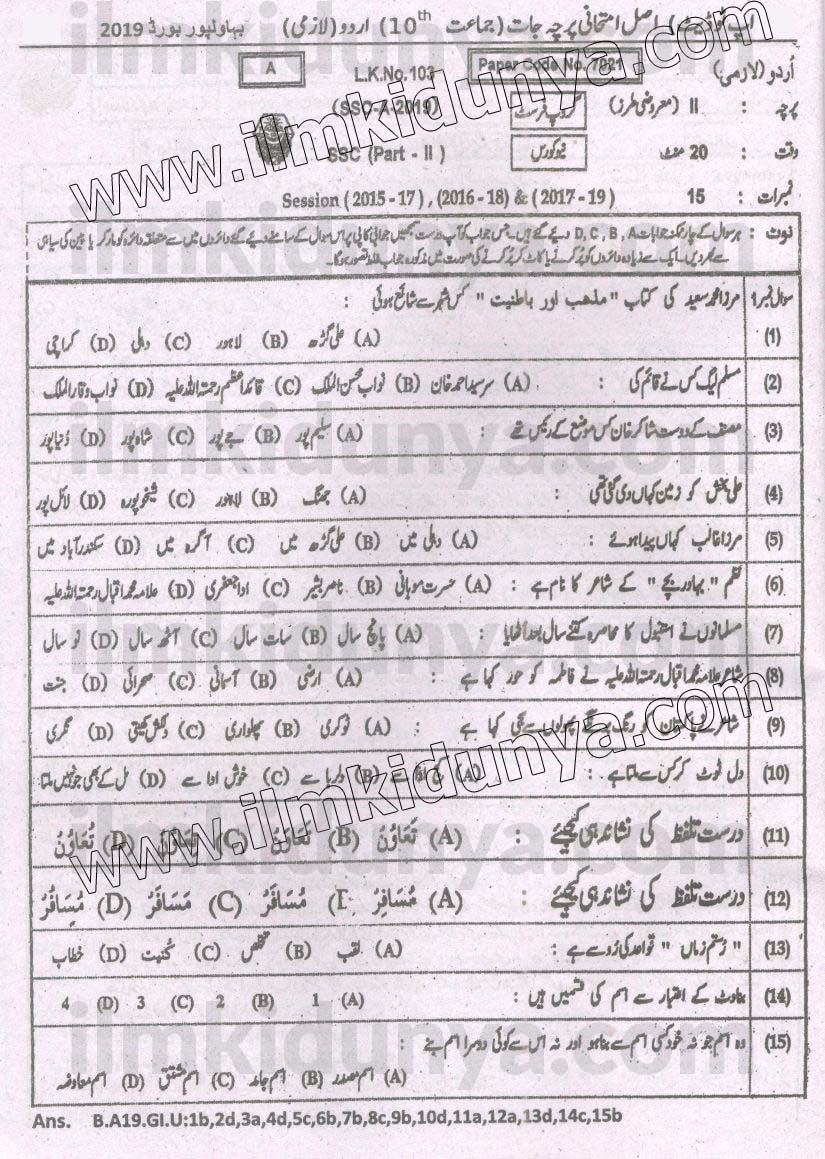 اپ ٹو ڈیٹ اصل امتحانی پرچہ جات (جماعت 10th) اردو (لازمی) بہاولپور بورڈ 2019
اُردو (لازمی) Paper Code No. 7021 L.K.No.103 A
پرچہ : II (معروضی طرز) گروپ فرسٹ (SSC-A-2019)
وقت : 20 منٹ نیو کورس SSC (Part - II)
نمبرات : 15 Session (2015 - 17) , (2016 - 18) & (2017 - 19)
نوٹ : ہر سوال کے چار ممکنہ جوابات D, C, B, A دیے گئے ہیں۔ جس جواب کو آپ درست سمجھیں جوابی کاپی پر اس سوال کے سامنے دیے گئے دائروں میں سے متعلقہ دائرہ کو مارکر یا پین کی سیاہی
سے بھر دیں۔ ایک سے زیادہ دائروں کو پُر کرنے یا کاٹ کر پُر کرنے کی صورت میں مذکورہ جواب غلط تصور ہوگا۔
سوال نمبر 1 مرزا محمد سعید کی کتاب " مذهب اور باطنیت " کس شہر سے شائع ہوئی :
(1) (A) علی گڑھ (B) لاہور (C) دہلی (D) کراچی
(2) مسلم لیگ کس نے قائم کی : (A) سرسید احمد خان (B) نواب محسن الملک (C) قائد اعظم رحمتہ اللہ علیہ (D) نواب وقار الملک
(3) مصنف کے دوست شاکر خان کس موضع کے رئیس تھے : (A) سلیم پور (B) جے پور (C) شاہ پور (D) دُنیا پور
(4) علی بخش کو زمین کہاں دی گئی تھی : (A) جھنگ (B) لاہور (C) شیخوپورہ (D) لائل پور
(5) مرزا غالب کہاں پیدا ہوئے : (A) دہلی میں (B) علی گڑھ میں (C) آگرہ میں (D) سکندر آباد میں
(6) نظم " پہاڑ کے بچے " کے شاعر کا نام ہے : (A) حسرت موہانی (B) ناصر بشیر (C) ادا جعفری (D) علامہ محمد اقبال رحمتہ اللہ علیہ
(7) مسلمانوں نے استنبول کا محاصرہ کتنے سال بعد اٹھایا : (A) پانچ سال (B) سات سال (C) آٹھ سال (D) نو سال
(8) شاعر علامہ محمد اقبال رحمتہ اللہ علیہ نے فاطمہ کو حور کہا ہے : (A) ارضی (B) آسمانی (C) صحرائی (D) جنت
(9) شاعر نے پاکستان کو رنگ برنگے پھولوں سے سجی کہا ہے : (A) ٹوکری (B) پھلواری (C) دلکش کھیتی (D) نگری
(10) دل ٹوٹ کر کس سے ملتا ہے : (A) (B) دلربا سے (C) خوش ادا سے (D) مل کے بھی جو نہیں ملتا
(11) درست تلفظ کی نشاندہی کیجیئے : (A) تَعَاوُنْ (B) تَعَاوَنْ (C) تَعَاوِنْ (D) تُعَاوُنْ
(12) درست تلفظ کی نشاندہی کیجیئے : (A) مُسَافِرُ (B) مُسَافَرُ (C) مَسَافَرُ (D) مُسَافُرُ
(13) " رُستم زماں " قواعد کی رُو سے ہے : (A) لقب (B) تخلص (C) کُنیت (D) خطاب
(14) بناوٹ کے اعتبار سے اسم کی قسمیں ہیں : (A) 1 (B) 2 (C) 3 (D) 4
(15) وہ اسم جو نہ خود کسی اسم سے بنا ہو اور نہ اس سے کوئی دوسرا اسم بنے :
(A) اسم مصدر (B) اسم جامد (C) اسم مشتق (D) اسم معاوضہ
Ans. B.A19.GI.U:1b,2d,3a,4d,5c,6b,7b,8c,9b,10d,11a,12a,13d,14c,15b
www.ilmkidunya.com
www.ilmkidunya.com
ilmkidunya.com
ilmkidunya.com
ilmkidunya.com
ilmkidunya.com
ilmkidunya.com
ilmkidunya.com